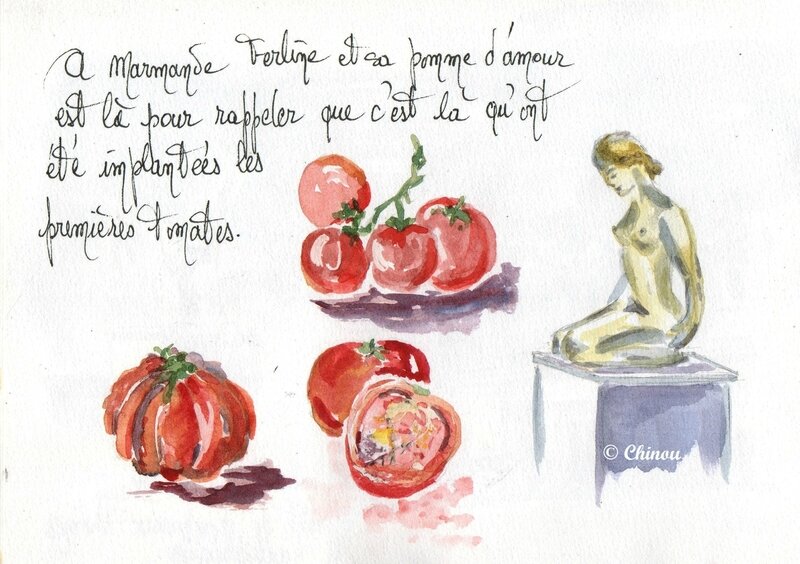 A Marmande Ferline et sa pomme d'amour
est là pour rappeler que c'est là qu'ont
été implantées les
premières tomates.
© Chinou